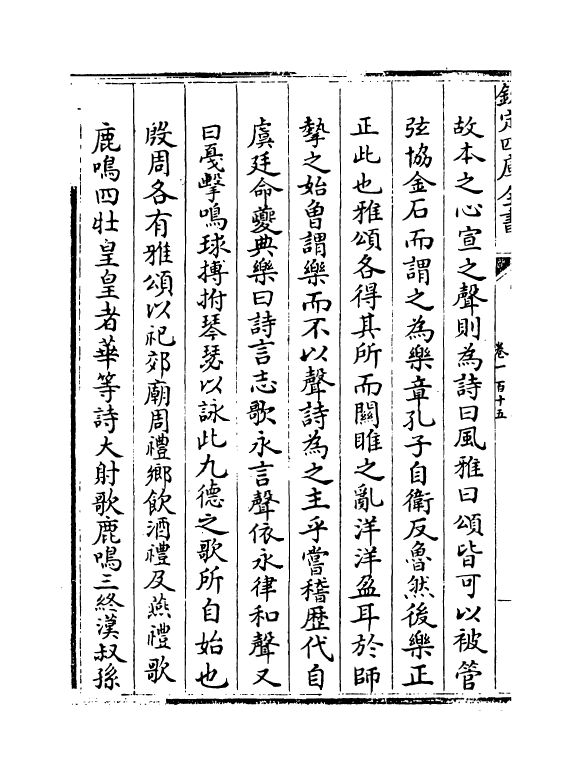 欽定四庫全書
卷一百十五
故本之心宣之聲則為詩曰風雅曰頌皆可以被管
弦協金石而謂之為樂章孔子自衛反魯然後樂正
正此也雅頌各得其所而關雎之亂洋洋盈耳於師
摯之始曾謂樂而不以聲詩為之主乎嘗稽歴代自
虞廷命夔典樂曰詩言志歌永言聲依永律和聲又
曰戛擊鳴球搏拊琴瑟以詠此九德之歌所自始也
殷周各有雅頌以祀郊廟周禮鄉飲酒禮及燕禮歌
鹿鳴四牡皇皇者華等詩大射歌鹿鳴三終漢叔孫